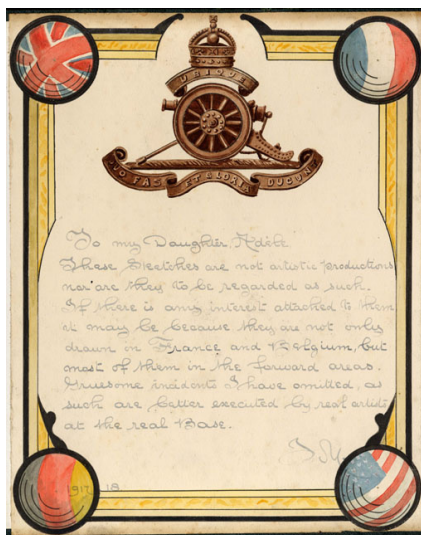 UBIQUE
QUO FAS ET GLORIA DUCUNT
To my Daughter Adèle
These Sketches are not artistic productions
nor are they to be regarded as such.
If there is any interest attached to them
it may be because they are not only
drawn in France and Belgium, but
most of them in the forward areas.
Gruesome incidents I have omitted, as
such are better executed by real artists
at the real Base.
1917 18